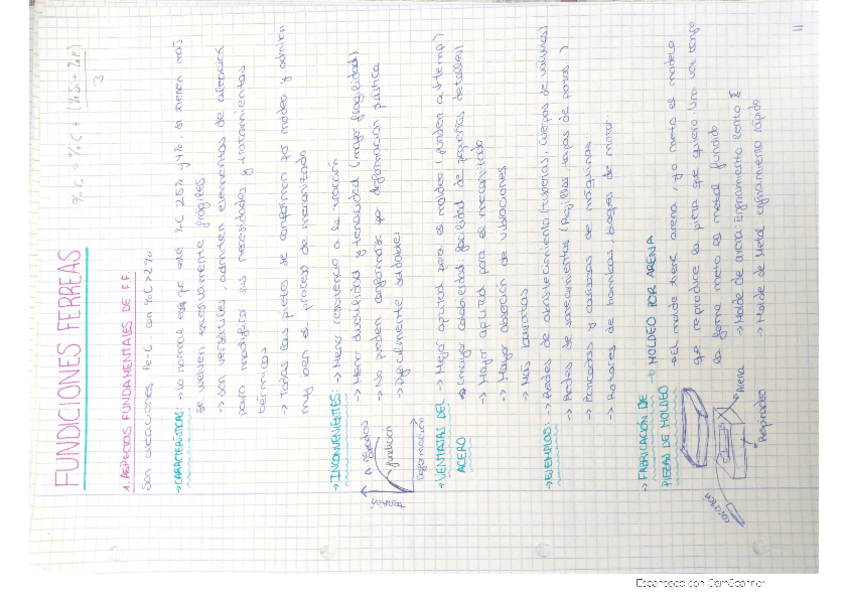 FUNDICIONES FERREAS
%C = %C + (%Si + %P) / 3
1. ASPECTOS FUNDAMENTALES DE F.F.
Son aleaciones Fe-C con %C>2%
→ CARACTERÍSTICAS: → Lo normal es que esté %C 2,5% y 4%, si tienen más
se vuelven excesivamente frágiles.
→ Son versátiles, admiten elementos de aleación
para modificar sus necesidades y tratamientos
térmicos
→ Todas las piezas se conforman por moldeo y admiten
muy bien el proceso de mecanizado
→ INCONVENIENTES: → Menor resistencia a la tracción
→ Menor ductilidad y tenacidad (mayor fragilidad)
→ No pueden conformarse por deformación plástica
→ Difícilmente soldables
fundición
Deformación
→ VENTAJAS DEL ACERO
→ Mejor aptitud para el moldeo (funden a ↓ temp)
→ (mayor colabilidad: facilidad de pequeños detalles)
→ Mejor aptitud para el mecanizado
→ Mayor absorción de vibraciones
→ Más baratas
→ EJEMPLOS: → Redes de abastecimiento (tuberías, cuerpos de válvulas)
→ Redes de saneamientos (Rejillas, tapas de pozos)
→ Bancadas y carcasas de máquinas.
→ Rotores de bombas, bloques de motor.
→ FABRICACIÓN DE PIEZAS DE MOLDEO
→ MOLDEO POR ARENA
→ El molde tiene arena, yo meto el modelo
que reproduce la pieza que quiero. Una vez tengo
la forma meto el metal fundido
→ Molde de arena enfriamiento lento
→ Molde de Metal enfriamiento rápido
Arena
Respiradero
11
Escaneado con CamScanner